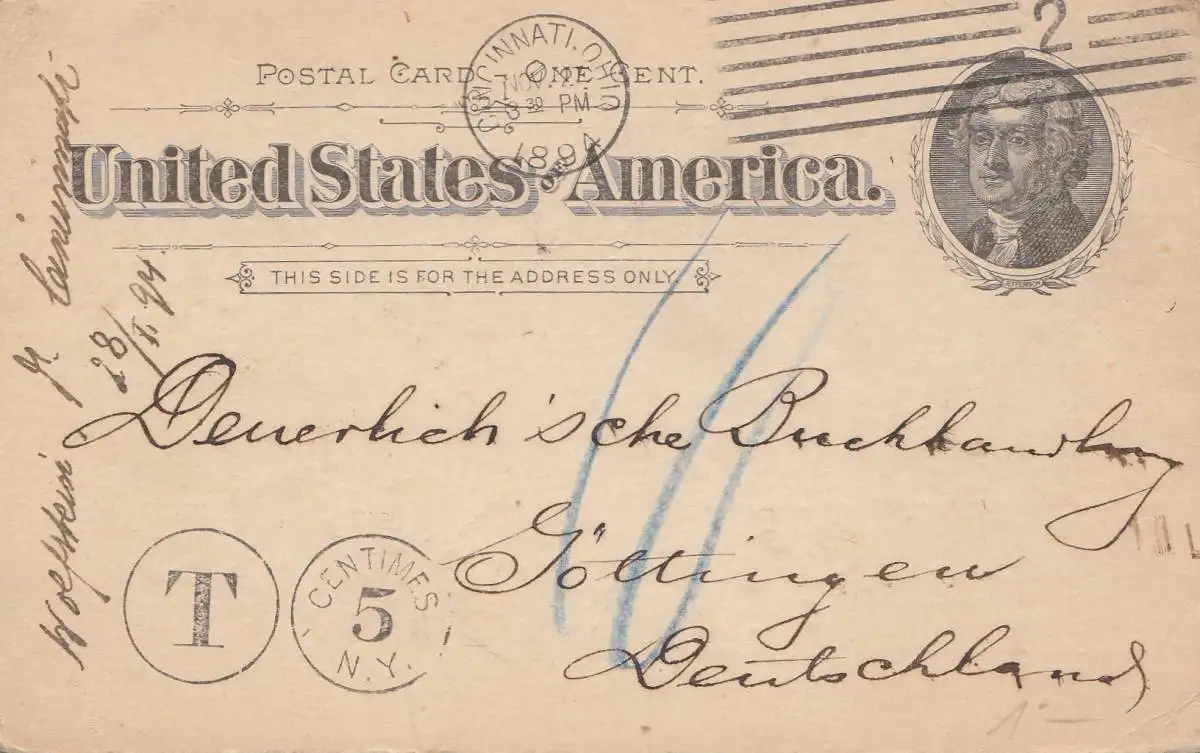 POSTAL CARD – ONE CENT.
CINCINNATI, OHIO
NOV
8 30 PM
1894
2
United States
OF
America.
JEFFERSON
THIS SIDE IS FOR THE ADDRESS ONLY
28/
94
Deuerlich'sche Buchhandlung
Göttingen
Deutschland
T
CENTIMES
5
N.Y.